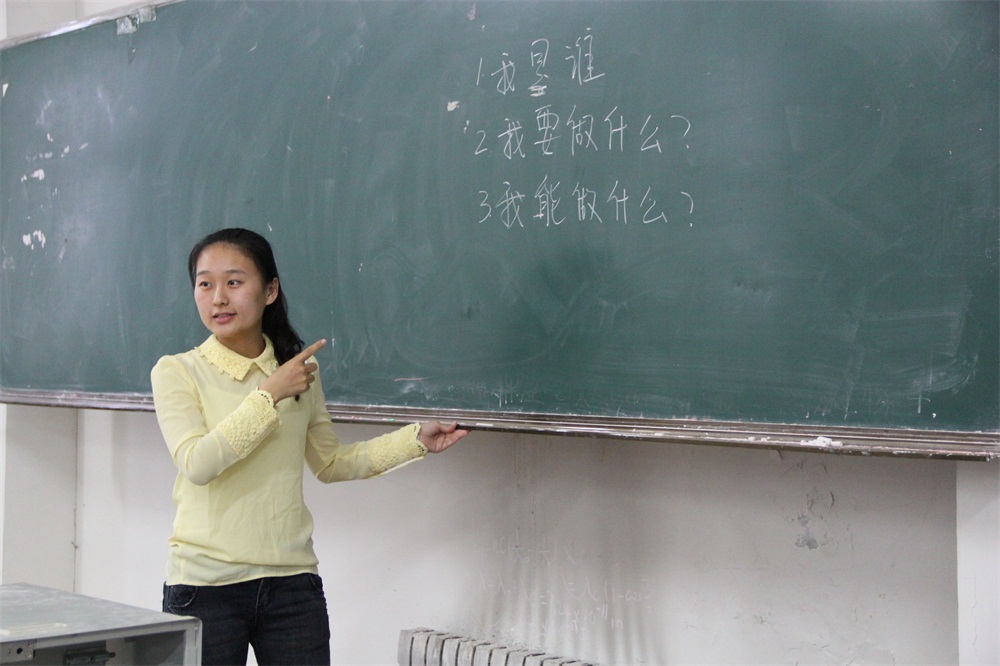 1 我是谁
2.我要做什么?
3.我能做什么?